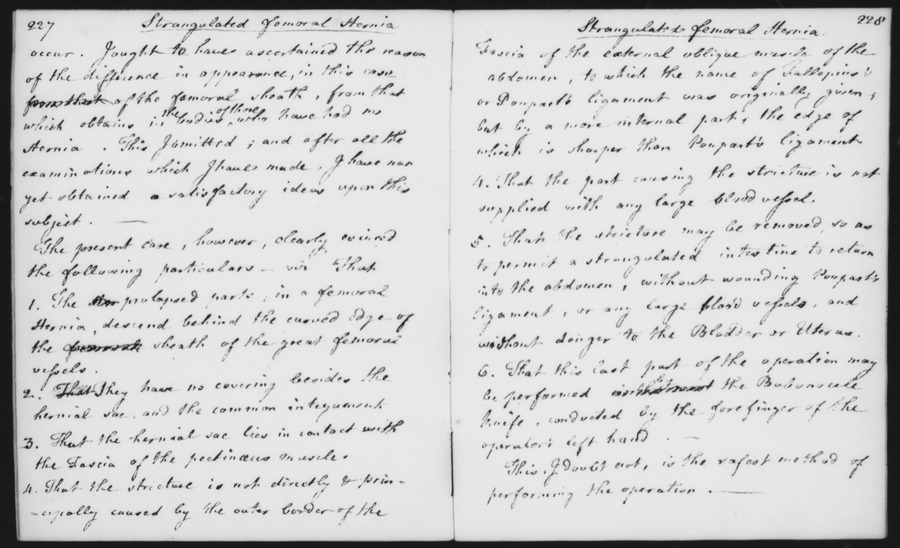 227 Strangulated femoral Hernia
occur. I ought to have ascertained the reason
of the difference in appearance, in this case
from that of the femoral sheath, from that
which obtains in the bodies of those who have had no
Hernia. This I omitted; and after all the
examinations which I have made, I have not
yet obtained a satisfactory idea upon this
subject. —
The present case, however, clearly evinced
the following particulars — viz That
1. The prolapsed parts, in a femoral
Hernia, descend behind the curved edge of
the sheath of the great femoral
vessels.
2. That they have no covering besides the
hernial sac, and the common integument
3. That the hernial sac lies in contact with
the Fascia of the pectinæus muscle.
4. That the stricture is not directly & prin-
-cipally caused by the outer border of the
Strangulated femoral Hernia. 228
Fascia of the external oblique muscle of the
abdomen, to which the name of Fallopius's
or Poupart's ligament was originally given;
but by a more internal part, the edge of
which is sharper than Poupart's ligament
4. That the part causing the stricture is not
supplied with any large blood vessel.
5. That the stricture may be removed, so as
to permit a strangulated intestine to return
into the abdomen, without wounding Poupart's
ligament, or any large blood vessels, and
without danger to the Bladder or Uterus.
6. That this last part of the operation may
be performed the Bubonocele
Knife, conducted by the forefinger of the
operator's left hand. —
This, I doubt not, is the safest method of
performing the operation. —